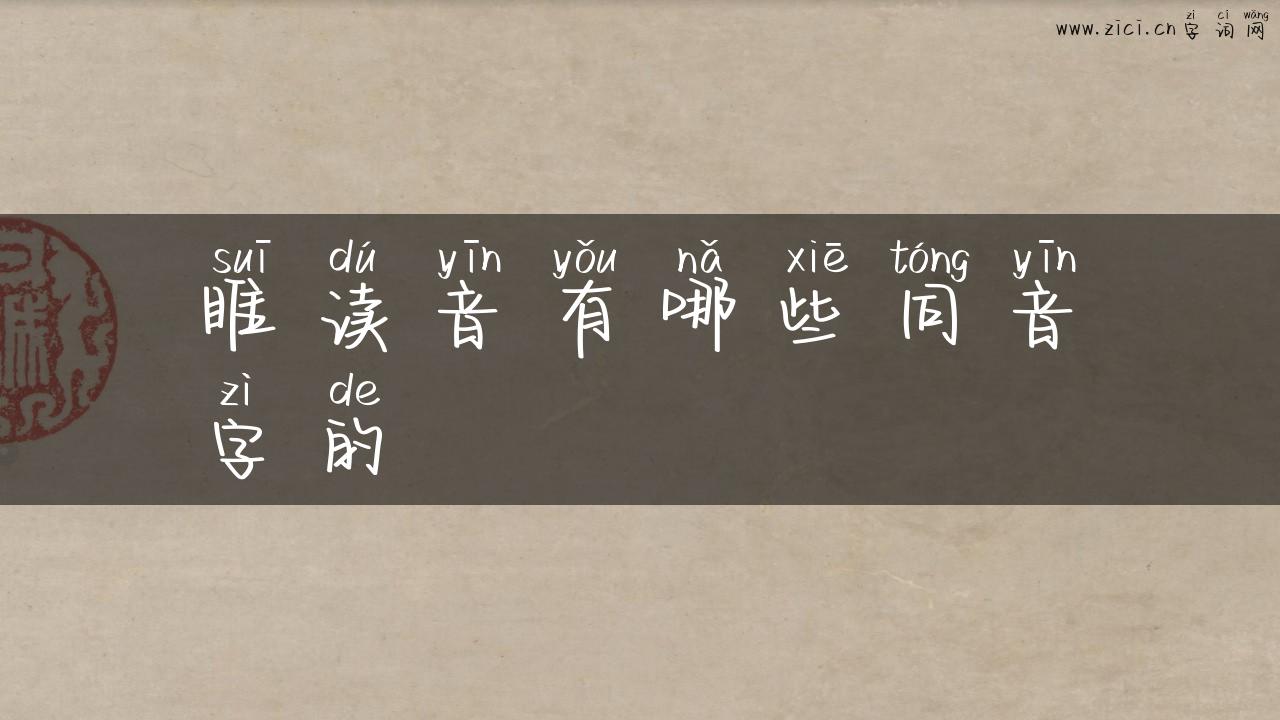 zì cí wǎng
www.zici.cn 字词网
suī dú yīn yǒu nǎ xiē tóng yīn
睢读音有哪些同音
zì de
字的